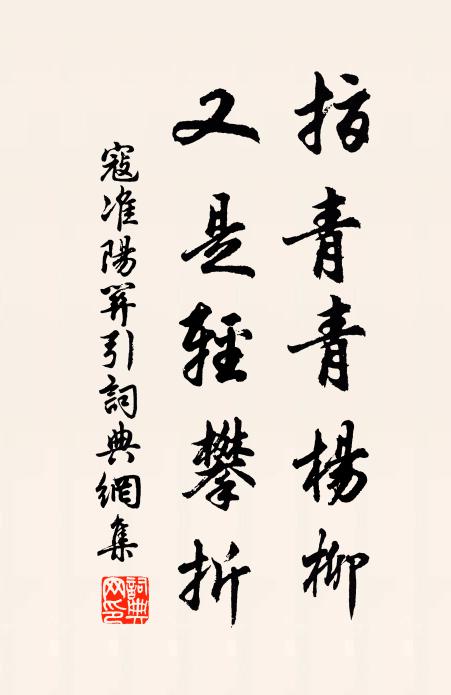 指青青楊柳
又是輕攀折
寇准陽关引詞典網集
詞典網印